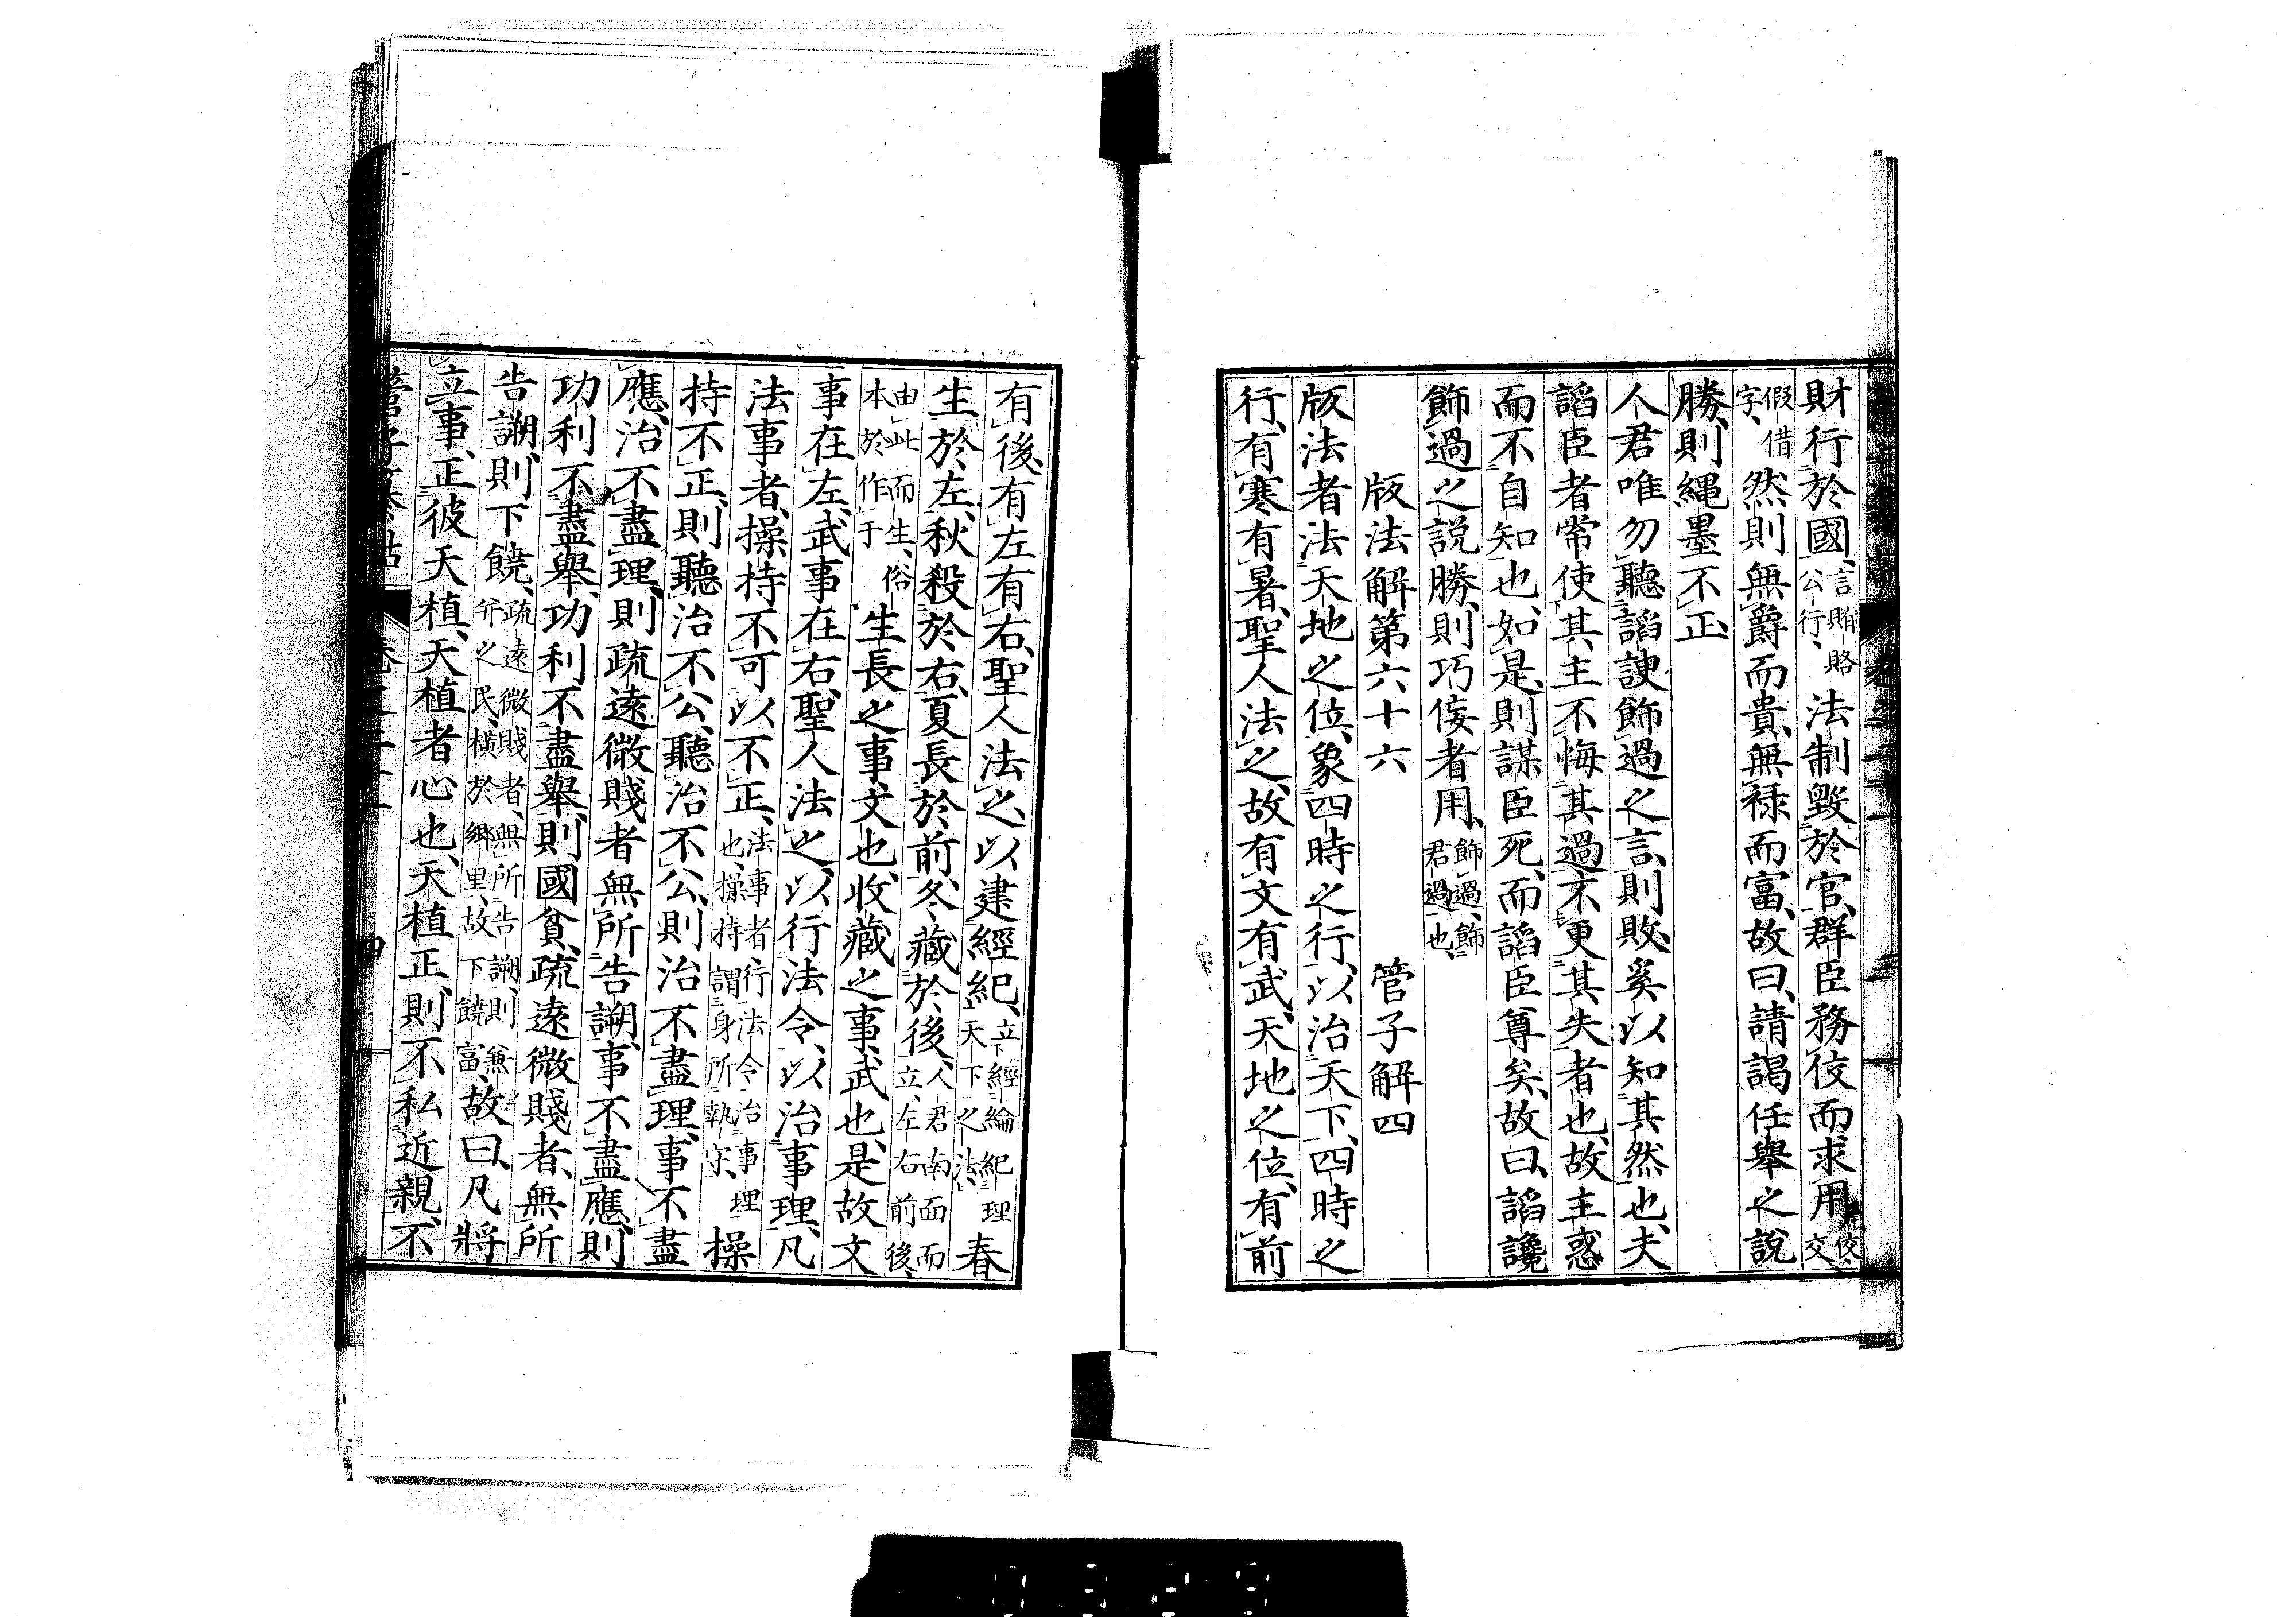 財行於國、言賄賂公行、法制毀於官、群臣務佼而求用、佼、交
假借字、然則無爵而貴、無祿而富、故曰、請謁任舉之說
勝、則繩墨不正、
人君唯勿聽諂諛飾過之言、則敗、奚以知其然也、夫
諂臣者常使其主不悔其過不更其失者也、故主惑
而不自知也、如是、則謀臣死、而諂臣尊矣、故曰、諂讒
飾過之說勝、則巧佞者用、飾過、飾君過也、
版法解第六十六 管子解四
版法者法天地之位、象四時之行、以治天下、四時之
行、有寒有暑、聖人法之、故有文有武、天地之位、有前
有後、有左有右、聖人法之、以建經紀、立經綸紀理天下之法、春
生於左、秋殺於右、夏長於前、冬藏於後、人君南面而立、左右前後、
由此而生、俗本於作于、生長之事、文也、收藏之事、武也、是故文
事在左、武事在右、聖人法之、以行法令、以治事理、凡
法事者、操持不可以不正、法事者、行法令治事理也、操持、謂身所執守、操
持不正、則聽治不公、聽治不公、則治不盡理、事不盡
應、治不盡理、則疏遠微賤者無所告謝、事不盡應、則
功利不盡舉、功利不盡舉、則國貧、疏遠微賤者、無所
告謝、則下饒、疏遠微賤者、無所告謝、則兼并之民、橫於鄉里、故下饒富、故曰、凡將
立事、正彼天植、天植者心也、天植正、則不私近親、不